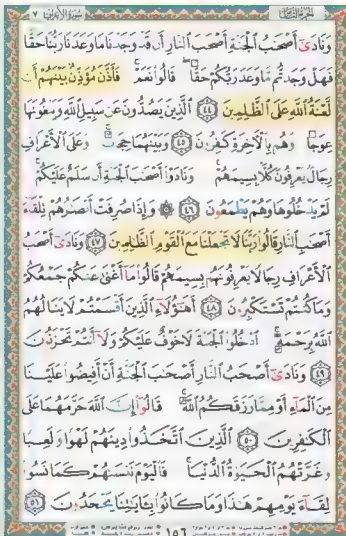 سورة الأعراف ٧
وَنَادَىٰ أَصْحَابُ الْجَنَّةِ أَصْحَابَ النَّارِ أَن قَدْ وَجَدْنَا مَا وَعَدَنَا رَبُّنَا حَقًّا
فَهَلْ وَجَدتُّم مَّا وَعَدَ رَبُّكُمْ حَقًّا ۖ قَالُوا نَعَمْ ۚ فَأَذَّنَ مُؤَذِّنٌ بَيْنَهُمْ أَن
لَّعْنَةُ اللَّهِ عَلَى الظَّالِمِينَ ٤٤ الَّذِينَ يَصُدُّونَ عَن سَبِيلِ اللَّهِ وَيَبْغُونَهَا
عِوَجًا وَهُم بِالْآخِرَةِ كَافِرُونَ ٤٥ وَبَيْنَهُمَا حِجَابٌ ۚ وَعَلَى الْأَعْرَافِ
رِجَالٌ يَعْرِفُونَ كُلًّا بِسِيمَاهُمْ ۚ وَنَادَوْا أَصْحَابَ الْجَنَّةِ أَن سَلَامٌ عَلَيْكُمْ ۚ
لَمْ يَدْخُلُوهَا وَهُمْ يَطْمَعُونَ ٤٦ ۞ وَإِذَا صُرِفَتْ أَبْصَارُهُمْ تِلْقَاءَ
أَصْحَابِ النَّارِ قَالُوا رَبَّنَا لَا تَجْعَلْنَا مَعَ الْقَوْمِ الظَّالِمِينَ ٤٧ وَنَادَىٰ أَصْحَابُ
الْأَعْرَافِ رِجَالًا يَعْرِفُونَهُم بِسِيمَاهُمْ قَالُوا مَا أَغْنَىٰ عَنكُمْ جَمْعُكُمْ
وَمَا كُنتُمْ تَسْتَكْبِرُونَ ٤٨ أَهَٰؤُلَاءِ الَّذِينَ أَقْسَمْتُمْ لَا يَنَالُهُمُ
اللَّهُ بِرَحْمَةٍ ۚ ادْخُلُوا الْجَنَّةَ لَا خَوْفٌ عَلَيْكُمْ وَلَا أَنتُمْ تَحْزَنُونَ
٤٩ وَنَادَىٰ أَصْحَابُ النَّارِ أَصْحَابَ الْجَنَّةِ أَنْ أَفِيضُوا عَلَيْنَا
مِنَ الْمَاءِ أَوْ مِمَّا رَزَقَكُمُ اللَّهُ ۚ قَالُوا إِنَّ اللَّهَ حَرَّمَهُمَا عَلَى
الْكَافِرِينَ ٥٠ الَّذِينَ اتَّخَذُوا دِينَهُمْ لَهْوًا وَلَعِبًا
وَغَرَّتْهُمُ الْحَيَاةُ الدُّنْيَا ۚ فَالْيَوْمَ نَنسَاهُمْ كَمَا نَسُوا
لِقَاءَ يَوْمِهِمْ هَٰذَا وَمَا كَانُوا بِآيَاتِنَا يَجْحَدُونَ ٥١
١٥٦